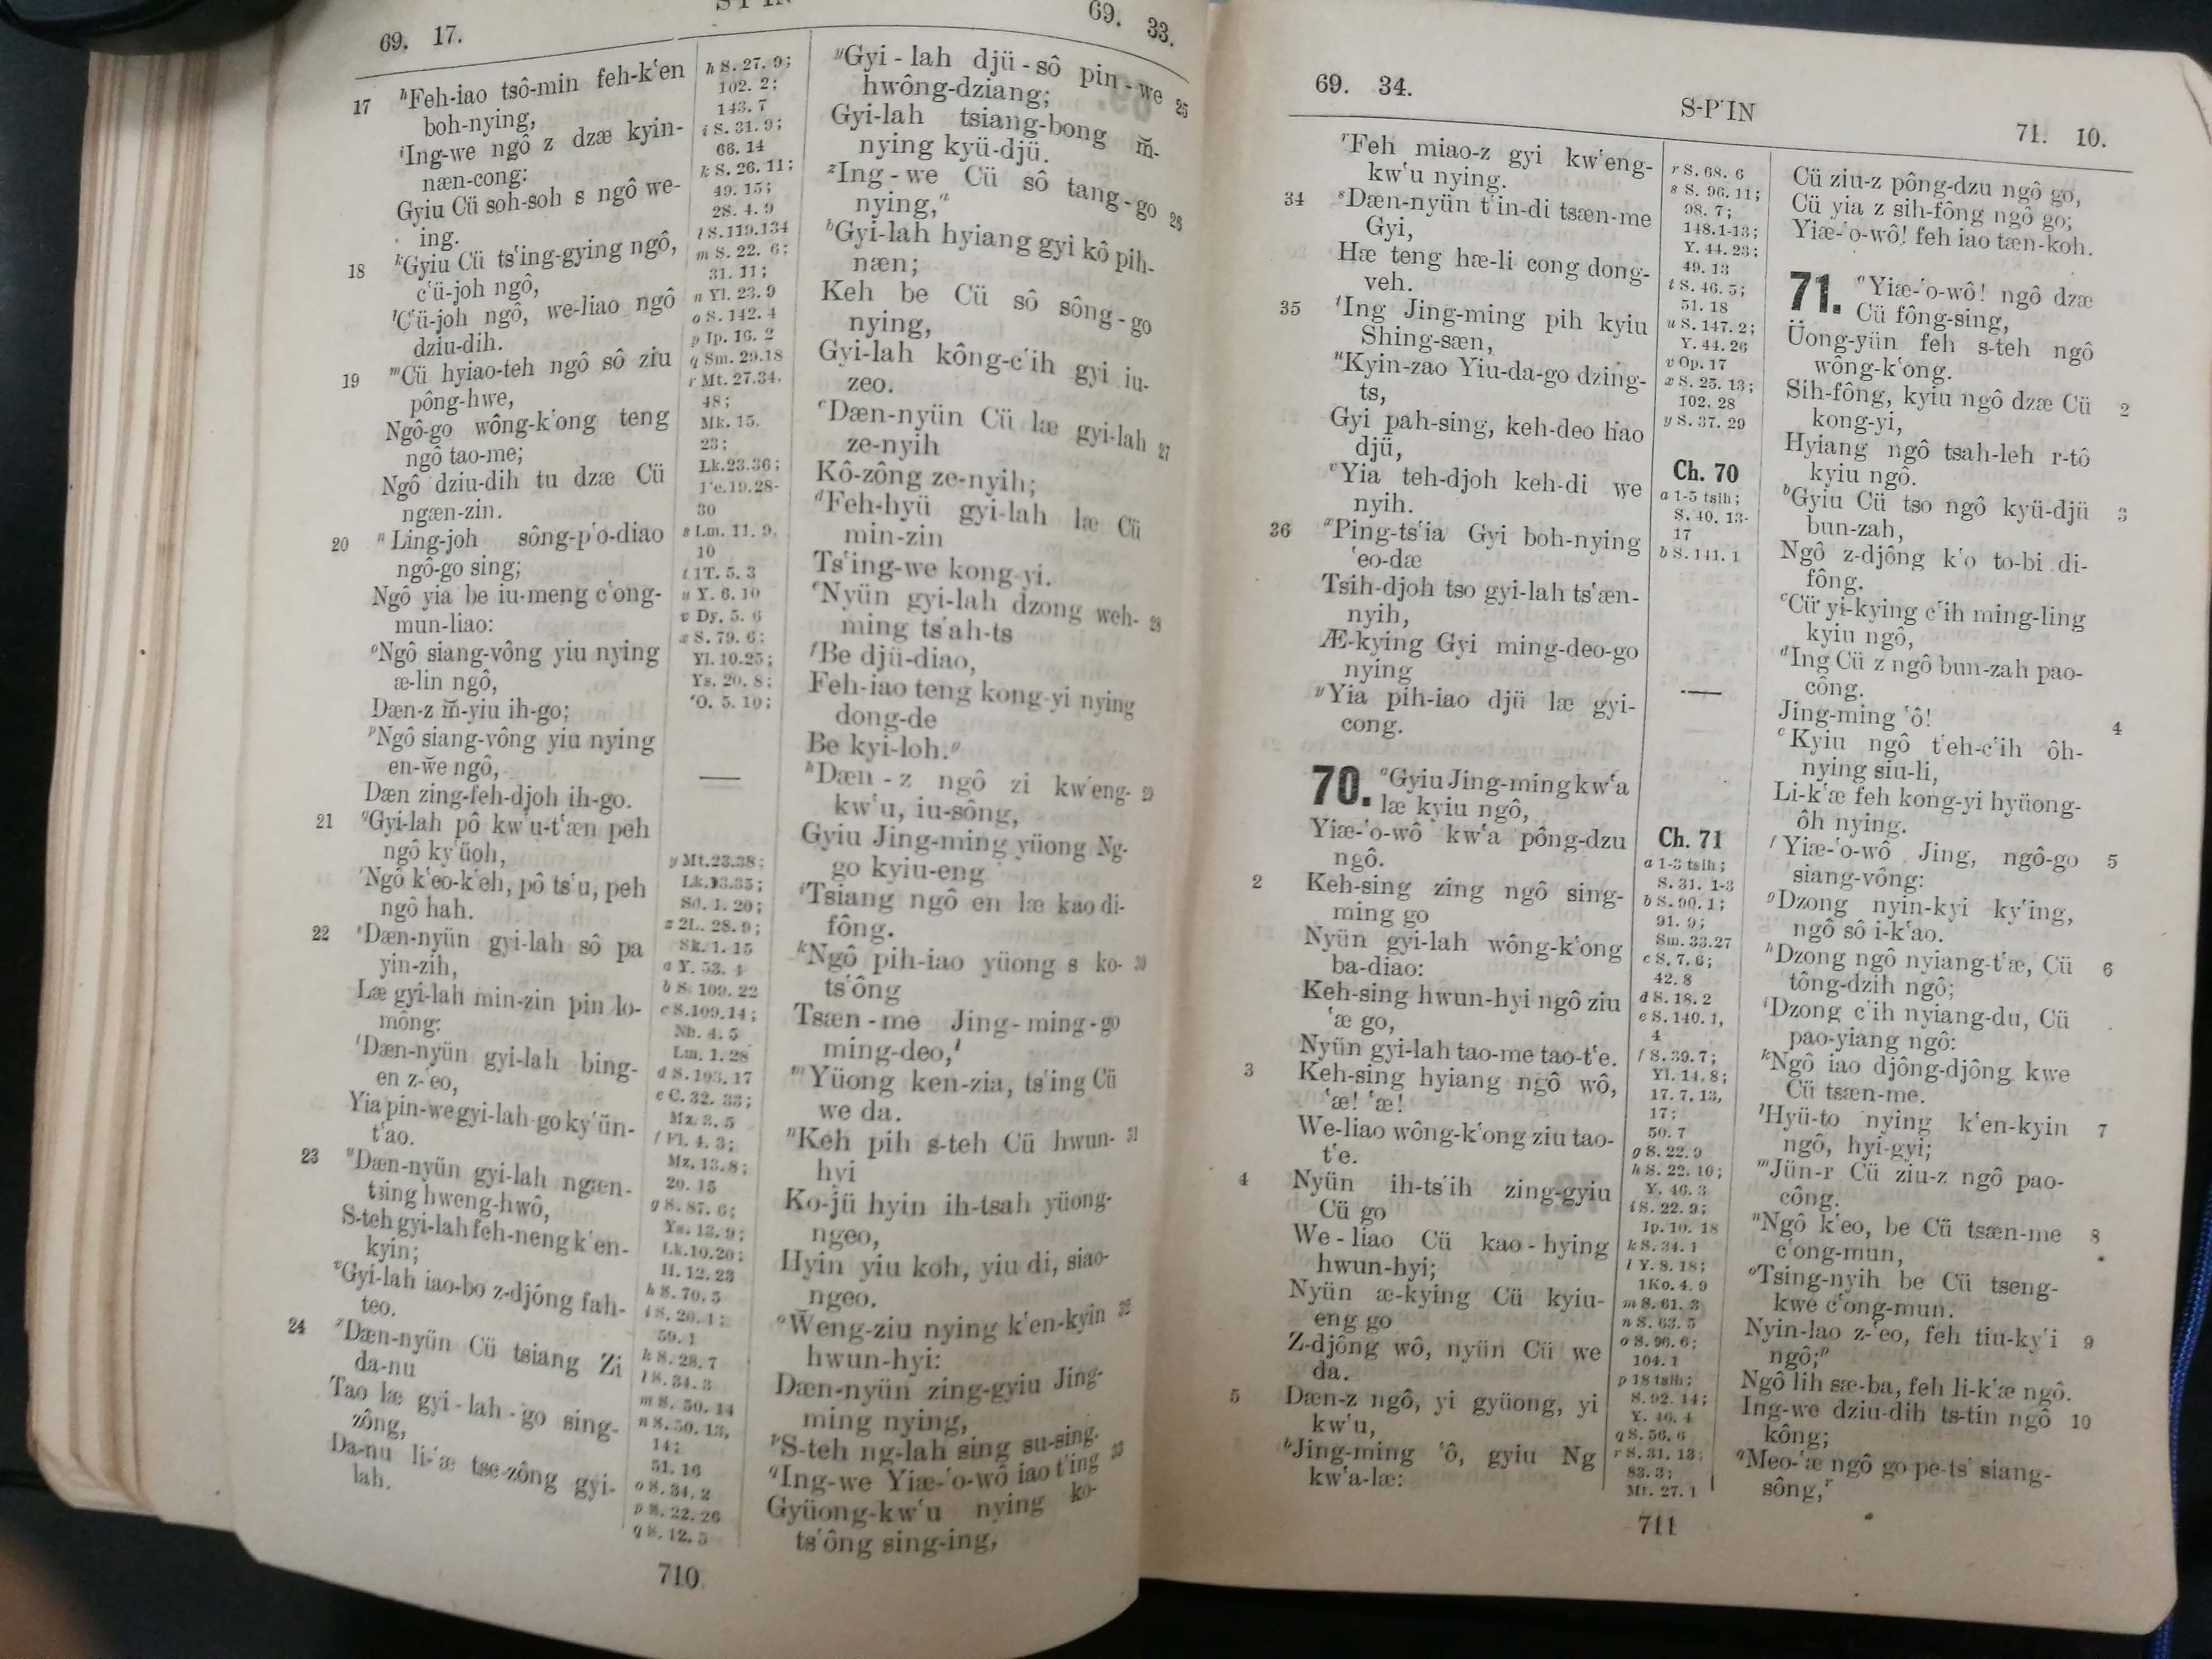 69. 17.
69. 33.
17 ʰFeh-iao tsô-min feh-k‘en
boh-nying,
ⁱIng-we ngô z dzæ kyin-
næn-cong:
Gyiu Cü soh-soh s ngô we-
ing.
18 ᵏGyiu Cü ts‘ing-gying ngô,
c‘ü-joh ngô,
ˡC‘ü-joh ngô, we-liao ngô
dziu-dih.
19 ᵐCü hyiao-teh ngô sô ziu
pông-hwe,
Ngô-go wông-k‘ong teng
ngô tao-me;
Ngô dziu-dih tu dzæ Cü
ngæn-zin.
20 ⁿLing-joh sông-p‘o-diao
ngô-go sing;
Ngô yia be iu-meng c‘ong-
mun-liao:
ᵒNgô siang-vông yiu nying
æ-lin ngô,
Dæn-z m̆-yiu ih-go;
ᵖNgô siang-vông yiu nying
en-w̆e ngô,
Dæn zing-feh-djoh ih-go.
21 ᑫGyi-lah pô kw‘u-t‘æn peh
ngô ky‘üoh,
ʳNgô k‘eo-k‘eh, pô ts‘u, peh
ngô hah.
22 ˢDæn-nyün gyi-lah sô pa
yin-zih,
Læ gyi-lah min-zin pin lo-
mông:
ᵗDæn-nyün gyi-lah bing-
en z-‘eo,
Yia pin-we gyi-lah-go ky‘ün-
t‘ao.
23 ᵘDæn-nyün gyi-lah ngæn-
tsing hweng-hwô,
S-teh gyi-lah feh-neng k‘en-
kyin;
ᵛGyi-lah iao-bo z-djông fah-
teo.
24 ˣDæn-nyün Cü tsiang Zi
da-nu
Tao læ gyi-lah-go sing-
zông,
Da-nu li-‘æ tse-zông gyi-
lah.
h S. 27. 9;
102. 2;
143. 7
i S. 31. 9;
66. 14
k S. 26. 11;
49. 15;
2S. 4. 9
l S.119.134
m S. 22. 6;
31. 11;
n Yl. 23. 9
o S. 142. 4
p Ip. 16. 2
q Sm. 29.18
r Mt. 27.34,
48;
Mk. 15.
23;
Lk.23.36;
Ie.19.28-
30
s Lm. 11. 9,
10
t 1T. 5. 3
u Y. 6. 10
v Dy. 5. 6
x S. 79. 6;
Yl. 10.25;
Ys. 20. 8;
‘O. 5. 10;
y Mt.23.38;
Lk.13.35;
Sd. 1. 20;
z 2L. 28. 9;
Sk. 1. 15
a Y. 53. 4
b S. 109. 22
c S.109.14;
Nh. 4. 5
Lm. 1. 28
d S.103. 17
e C. 32. 33;
Mz. 3. 5
f Fl. 4. 3;
Mz. 13.8;
20. 15
g S. 87. 6;
Ys. 13. 9;
Lk.10.20;
H. 12. 23
h S. 70. 5
i S. 20. 1;
59. 1
k S. 28. 7
l S. 34. 3
m S. 50. 14
n S. 50. 13,
14;
51. 16
o S. 34. 2
p S. 22. 26
q S. 12. 5
ʸGyi-lah djü-sô pin-we 25
hwông-dziang;
Gyi-lah tsiang-bong m̆-
nying kyü-djü.
ᶻIng-we Cü sô tang-go 26
nying,ᵃ
ᵇGyi-lah hyiang gyi kô pih-
næn;
Keh be Cü sô sông-go
nying,
Gyi-lah kông-c‘ih gyi iu-
zeo.
ᶜDæn-nyün Cü læ gyi-lah 27
ze-nyih
Kô-zông ze-nyih;
ᵈFeh-hyü gyi-lah læ Cü
min-zin
Ts‘ing-we kong-yi.
ᵉNyün gyi-lah dzong weh- 28
ming ts‘ah-ts
ᶠBe djü-diao,
Feh-iao teng kong-yi nying
dong-de
Be kyi-loh.ᵍ
ʰDæn-z ngô zi kw‘eng- 29
kw‘u, iu-sông,
Gyiu Jing-ming yüong Ng-
go kyiu-eng
ⁱTsiang ngô en læ kao di-
fông.
ᵏNgô pih-iao yüong s ko- 30
ts‘ông
Tsæn-me Jing-ming-go
ming-deo,ˡ
ᵐYüong ken-zia, ts‘ing Cü
we da.
ⁿKeh pih s-teh Cü hwun- 31
hyi
Ko-jü hyin ih-tsah yüong-
ngeo,
Hyin yiu koh, yiu di, siao-
ngeo.
ᵒW̆eng-ziu nying k‘en-kyin 32
hwun-hyi:
Dæn-nyün zing-gyiu Jing-
ming nying,
ᵖS-teh ng-lah sing su-sing.
ᑫIng-we Yiæ-‘o-wô iao t‘ing 33
Gyüong-kw‘u nying ko-
ts‘ông sing-ing,
710
69. 34.
S-P‘IN
71. 10.
ʳFeh miao-z gyi kw‘eng-
kw‘u nying.
34 ˢDæn-nyün t‘in-di tsæn-me
Gyi,
Hæ teng hæ-li cong dong-
veh.
35 ᵗIng Jing-ming pih kyiu
Shing-sæn,
ᵘKyin-zao Yiu-da-go dzing-
ts,
Gyi pah-sing, keh-deo hao
djü,
ᵛYia teh-djoh keh-di we
nyih.
36 ˣPing-ts‘ia Gyi boh-nying
‘eo-dæ
Tsih-djoh tso gyi-lah ts‘æn-
nyih,
Æ-kying Gyi ming-deo-go
nying
ʸYia pih-iao djü læ gyi-
cong.
70. ᵃGyiu Jing-ming kw‘a
læ kyiu ngô,
Yiæ-‘o-wô kw‘a pông-dzu
ngô.
2 Keh-sing zing ngô sing-
ming go
Nyün gyi-lah wông-k‘ong
ba-diao:
Keh-sing hwun-hyi ngô ziu
‘æ go,
Nyün gyi-lah tao-me tao-t‘e.
3 Keh-sing hyiang ngô wô,
‘æ! ‘æ!
We-liao wông-k‘ong ziu tao-
t‘e.
4 Nyün ih-ts‘ih zing-gyiu
Cü go
We-liao Cü kao-hying
hwun-hyi;
Nyün æ-kying Cü kyiu-
eng go
Z-djông wô, nyün Cü we
da.
5 Dæn-z ngô, yi gyüong, yi
kw‘u,
ᵇJing-ming ‘ô, gyiu Ng
kw‘a-læ:
r S. 68. 6
s S. 96. 11;
98. 7;
148.1-13;
Y. 44. 23;
49. 13
t S. 46. 5;
51. 18
u S. 147. 2;
Y. 44. 26
v Op. 17
x S. 25. 13;
102. 28
y S. 37. 29
Ch. 70
a 1-5 tsih;
S. 40. 13-
17
b S. 141. 1
Ch. 71
a 1-3 tsih;
S. 31. 1-3
b S. 90. 1;
91. 9;
Sm. 33.27
c S. 7. 6;
42. 8
d S. 18. 2
e S. 140. 1,
4
f S. 39. 7;
Yl. 14. 8;
17. 7. 13,
17;
50. 7
g S. 22. 9
h S. 22. 10;
Y. 46. 3
i S. 22. 9;
Ip. 10. 18
k S. 34. 1
l Y. 8. 18;
1Ko. 4. 9
m S. 61. 3
n S. 63. 5
o S. 96. 6;
104. 1
p 18 tsih;
S. 92. 14;
Y. 46. 4
q S. 56. 6
r S. 31. 13;
83. 3;
Mt. 27. 1
Cü ziu-z pông-dzu ngô go,
Cü yia z sih-fông ngô go;
Yiæ-‘o-wô! feh iao tæn-koh.
71. ᵃYiæ-‘o-wô! ngô dzæ
Cü fông-sing,
Üong-yün feh s-teh ngô
wông-k‘ong.
Sih-fông, kyiu ngô dzæ Cü 2
kong-yi,
Hyiang ngô tsah-leh r-tô
kyiu ngô.
ᵇGyiu Cü tso ngô kyü-djü 3
bun-zah,
Ngô z-djông k‘o to-bi di-
fông.
ᶜCü yi-kying c‘ih ming-ling
kyiu ngô,
ᵈIng Cü z ngô bun-zah pao-
công.
Jing-ming ‘ô! 4
ᵉKyiu ngô t‘eh-c‘ih ôh-
nying siu-li,
Li-k‘æ feh kong-yi hyüong-
ôh nying.
ᶠYiæ-‘o-wô Jing, ngô-go 5
siang-vông:
ᵍDzong nyin-kyi ky‘ing,
ngô sô i-k‘ao.
ʰDzong ngô nyiang-t‘æ, Cü 6
tông-dzih ngô;
ⁱDzong c‘ih nyiang-du, Cü
pao-yiang ngô:
ᵏNgô iao djông-djông kwe
Cü tsæn-me.
ˡHyü-to nying k‘en-kyin 7
ngô, hyi-gyi;
ᵐJün-r Cü ziu-z ngô pao-
công.
ⁿNgô k‘eo, be Cü tsæn-me 8
c‘ong-mun,
ᵒTsing-nyih be Cü tseng-
kwe c‘ong-mun.
Nyin-lao z-‘eo, feh tiu-ky‘i 9
ngô;ᵖ
Ngô lih sæ-ba, feh li-k‘æ ngô.
Ing-we dziu-dih ts-tin ngô 10
kông;
ᑫMeo-‘æ ngô go pe-ts‘ siang-
sông,ʳ
711